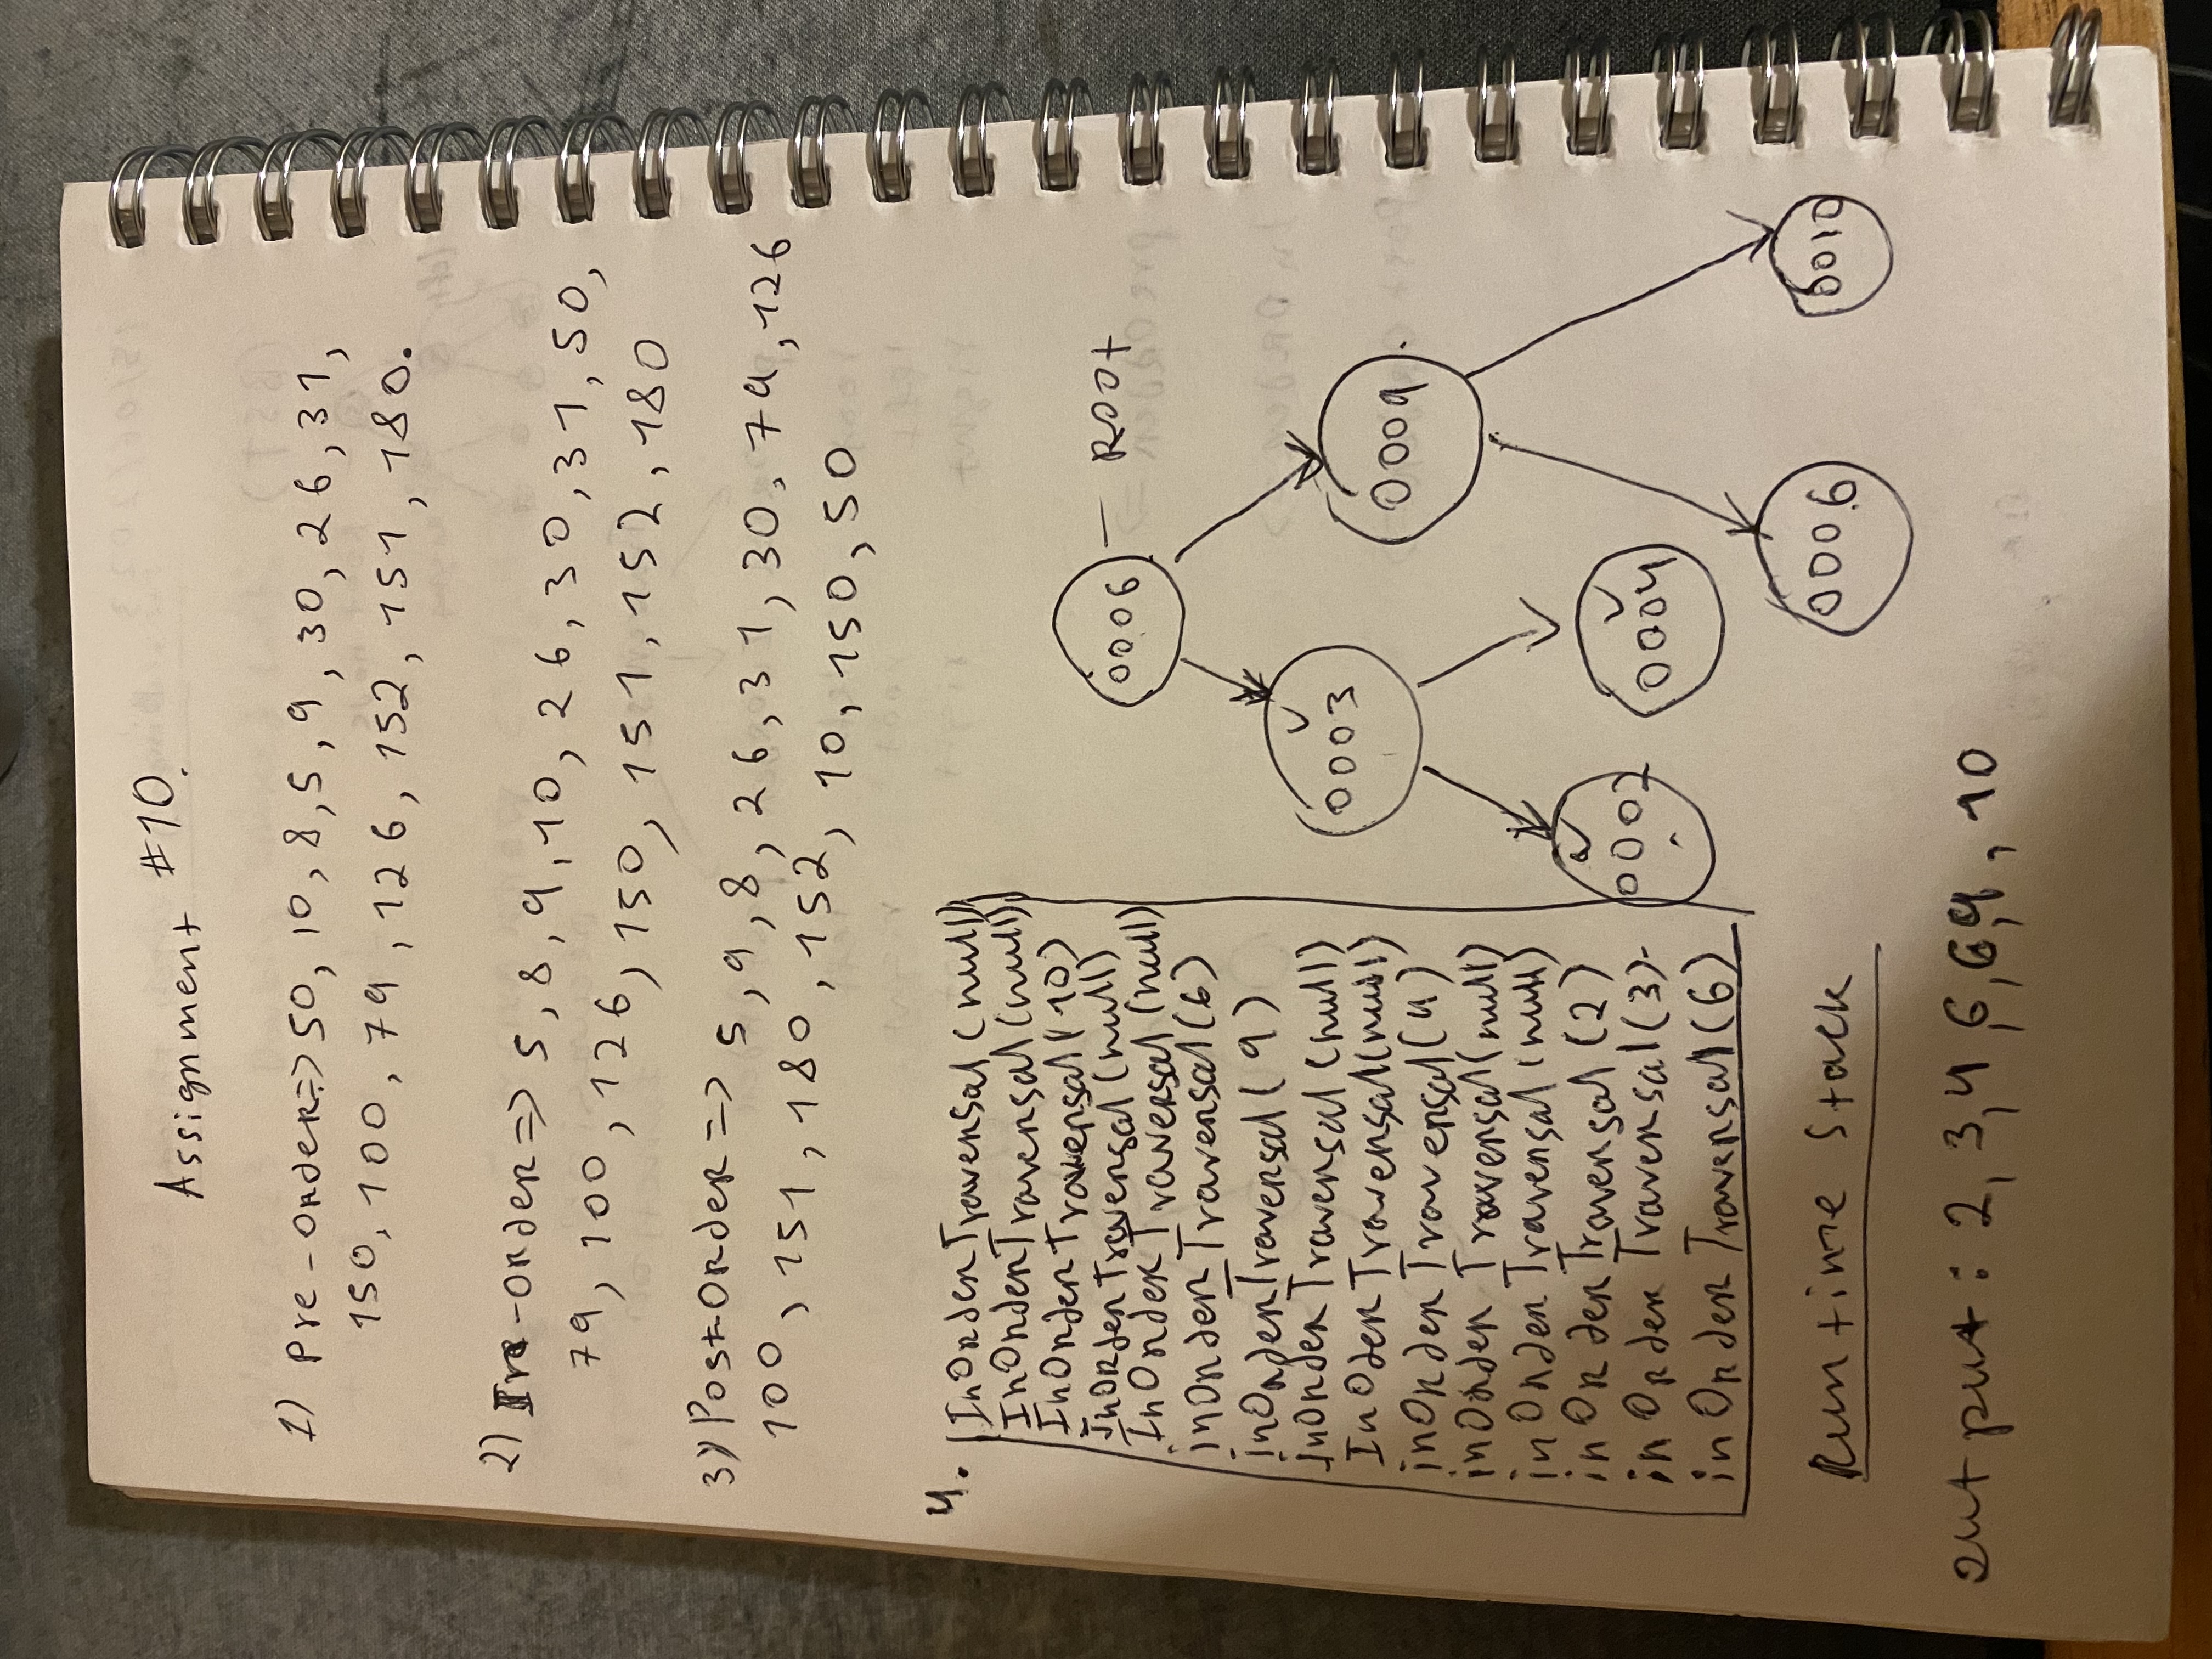 Assignment #10.
1) Pre-Order=> 50, 10, 8, 5, 9, 30, 26, 31,
150, 100, 79, 126, 152, 151, 180.
2) In-Order => 5, 8, 9, 10, 26, 30, 31, 50,
79, 100, 126, 150, 151, 152, 180
3) Post-Order => 5, 9, 8, 26, 31, 30, 79, 126
100, 151, 180, 152, 10, 150, 50
4.
InOrderTraversal (null)
InOrderTraversal (null)
InOrderTraversal (10)
InOrderTraversal (null)
InOrderTraversal (null)
inOrderTraversal (6)
inOrderTraversal (9)
inOrderTraversal (null)
InOderTraversal (null)
inOrderTraversal (4)
inOrderTraversal (null)
inOrderTraversal (null)
inOrderTraversal (2)
inOrderTraversal (3)
inOrderTraversal (6)
Runtime Stack
0006 - Root
0003
0009
0002
0004
0006
0010
output : 2, 3, 4, 6, 6, 9, 10